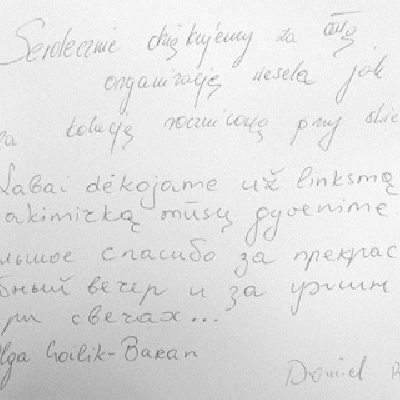 Serdecznie dziękujemy za
organizację wesela jak
za kolację rocznicową przy świe
Labai dėkojame už linksmą
akimirką mūsų gyvenime.
льшое спасибо за прекрас
бный вечер и за ужин
при свечах...
lga Baran
Daniel